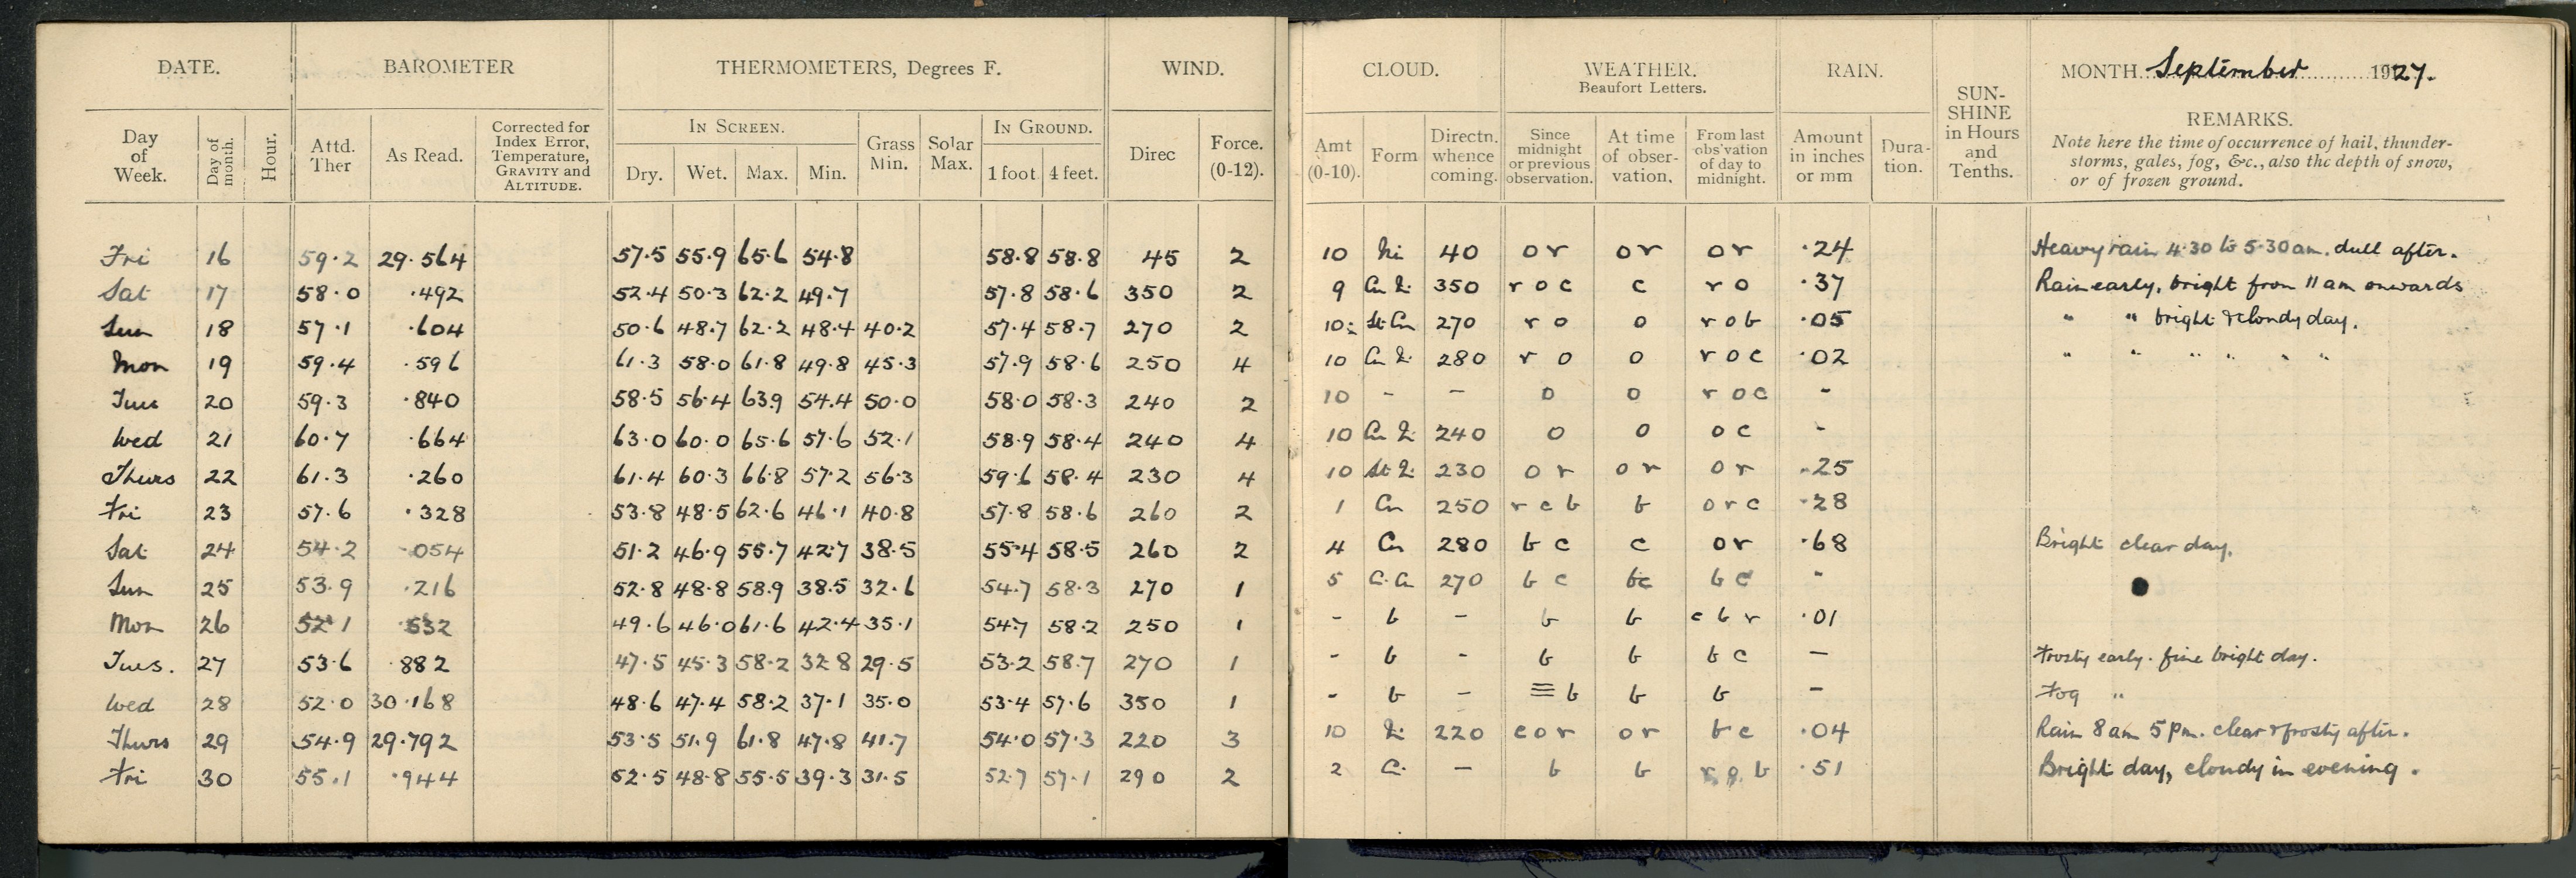 DATE. BAROMETER THERMOMETERS, Degrees F. WIND. CLOUD. WEATHER. Beaufort Letters. RAIN. SUN-SHINE in Hours and Tenths. MONTH September 1927.
REMARKS.
Note here the time of occurrence of hail, thunder-
storms, gales, fog, &c., also the depth of snow,
or of frozen ground.
IN SCREEN. IN GROUND.
Day of Week. Day of month. Hour. Attd. Ther As Read. Corrected for Index Error, Temperature, GRAVITY and ALTITUDE. Dry. Wet. Max. Min. Grass Min. Solar Max. 1 foot 4 feet. Direc Force. (0-12). Amt (0-10). Form Directn. whence coming. Since midnight or previous observation. At time of obser-vation. From last obs'vation of day to midnight. Amount in inches or mm Dura-tion.
Fri 16 59.2 29.564 57.5 55.9 65.6 54.8 58.8 58.8 45 2 10 Ni 40 o r o r o r .24 Heavy rain 4.30 to 5.30 am. dull after.
Sat 17 58.0 .492 52.4 50.3 62.2 49.7 57.8 58.6 350 2 9 Cu Ni 350 r o c c r o .37 Rain early, bright from 11 am onwards
Sun 18 57.1 .604 50.6 48.7 62.2 48.4 40.2 57.4 58.7 270 2 10 St Cu 270 r o o r o b .05 " " bright & cloudy day.
Mon 19 59.4 .596 61.3 58.0 61.8 49.8 45.3 57.9 58.6 250 4 10 Cu Ni 280 r o o r o c .02 " " " " " "
Tues 20 59.3 .840 58.5 56.4 63.9 54.4 50.0 58.0 58.3 240 2 10 - - o o r o c -
Wed 21 60.7 .664 63.0 60.0 65.6 57.6 52.1 58.9 58.4 240 4 10 Cu Ni 240 o o o c -
Thurs 22 61.3 .260 61.4 60.3 66.8 57.2 56.3 59.6 58.4 230 4 10 St Ni 230 o r o r o r .25
Fri 23 57.6 .328 53.8 48.5 62.6 46.1 40.8 57.8 58.6 260 2 1 Cu 250 r c b b o r c .28
Sat 24 54.2 .054 51.2 46.9 55.7 42.7 38.5 55.4 58.5 260 2 4 Cu 280 b c c o r .68 Bright clear day.
Sun 25 53.9 .216 52.8 48.8 58.9 38.5 32.6 54.7 58.3 270 1 5 C. Cu 270 b c bc b c -
Mon 26 52.1 .532 49.6 46.0 61.6 42.4 35.1 54.7 58.2 250 1 - b - b b c b r .01
Tues. 27 53.6 .882 47.5 45.3 58.2 32.8 29.5 53.2 58.7 270 1 - b - b b b c — Frosty early. fine bright day.
Wed 28 52.0 30.168 48.6 47.4 58.2 37.1 35.0 53.4 57.6 350 1 - b - ≡ b b b - Fog "
Thurs 29 54.9 29.792 53.5 51.9 61.8 47.8 41.7 54.0 57.3 220 3 10 Ni 220 c o r o r b c .04 Rain 8 am 5 pm. clear & frosty after.
Fri 30 55.1 .944 52.5 48.8 55.5 39.3 31.5 52.7 57.1 290 2 2 C. — b b .51 Bright day, cloudy in evening.